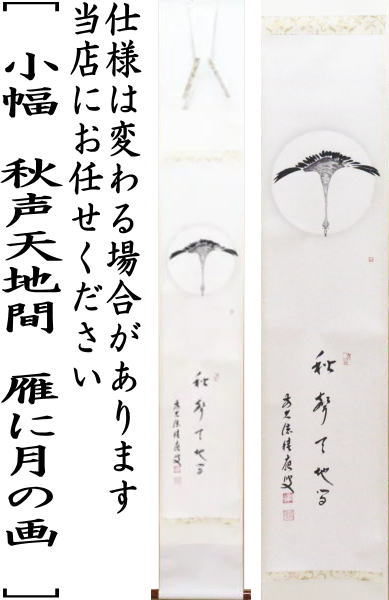 仕様は変わる場合があります
当店にお任せください
[ 小幅 秋声天地間 雁に月の画 ]
秋聲天地間